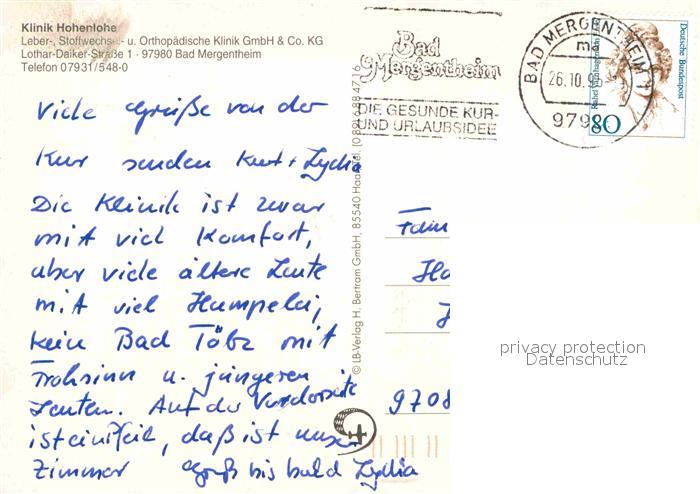 Klinik Hohenlohe
Leber-, Stoffwechsel- u. Orthopädische Klinik GmbH & Co. KG
Lothar-Daiker-Straße 1 · 97980 Bad Mergentheim
Telefon 07931/548-0
Viele Grüße von der
Kur senden Kurt + Lydia
Die Klinik ist zwar
mit viel Komfort,
aber viele ältere Leute
mit viel Humpelei,
kein Bad Tölz mit
Frohsinn u. jüngeren
Leuten. Auf der Vorderseite
ist ein Pfeil, daß ist unser
Zimmer Gruß bis bald Lydia
© LB-Verlag H. Bertram GmbH, 85540 Haar, Tel.
Bad
Mergentheim
DIE GESUNDE KUR-
UND URLAUBSIDEE
BAD MERGENTHEIM 1
ma
26.10.9
979
Deutsche Bundespost
80
Fam
Ha
9708
privacy protection
Datenschutz